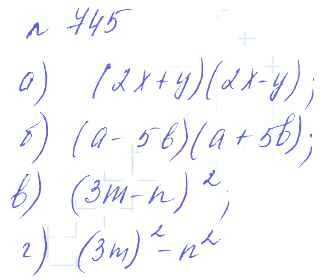 n 745
а) (2x+y)(2x-y);
б) (a-5b)(a+5b);
в) (3m-n)²;
г) (3m)²-n²